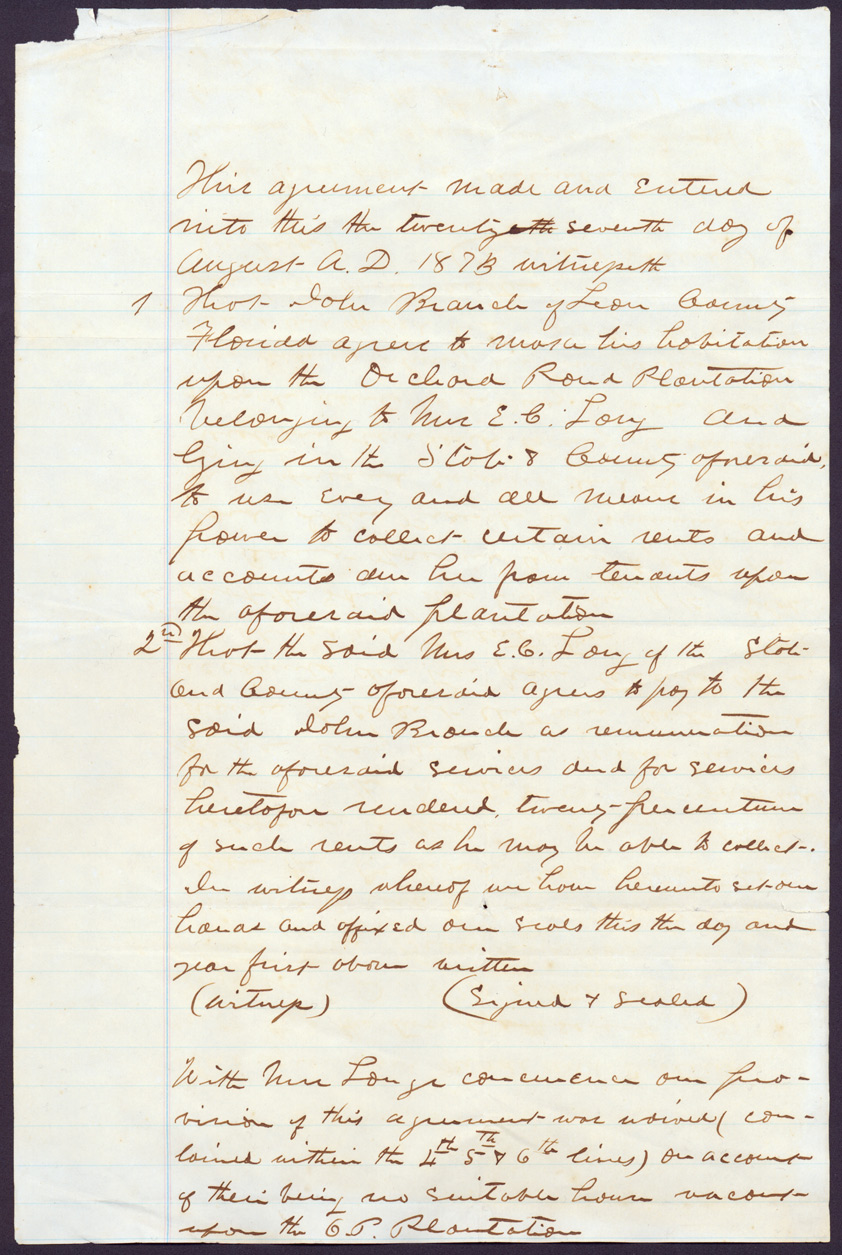 This agreement made and entered
into this the twenty eth seventh day of
August A.D. 1873 witnesseth
1 That John Branch of Leon County
Florida agrees to make his habitation
upon the Orchard Pond Plantation
belonging to Mrs E.C. Long and
lying in the State & County aforesaid,
to use every and all means in his
power to collect certain rents and
accounts due her from tenants upon
the aforesaid plantation
2nd That the said Mrs E.C. Long of the State
and County aforesaid agrees to pay to the
said John Branch as remuneration
for the aforesaid services and for services
heretofore rendered, twenty per centum
of such rents as he may be able to collect.
In witness whereof we have hereunto set our
hands and affixed our seals this the day and
year first above written
(Witness) (Signed & Sealed)
With Mrs Longs concurrence one pro-
vision of this agreement was waived (con-
tained within the 4th 5th & 6th lines) on account
of their being no suitable house vacant
upon the O.P. Plantation